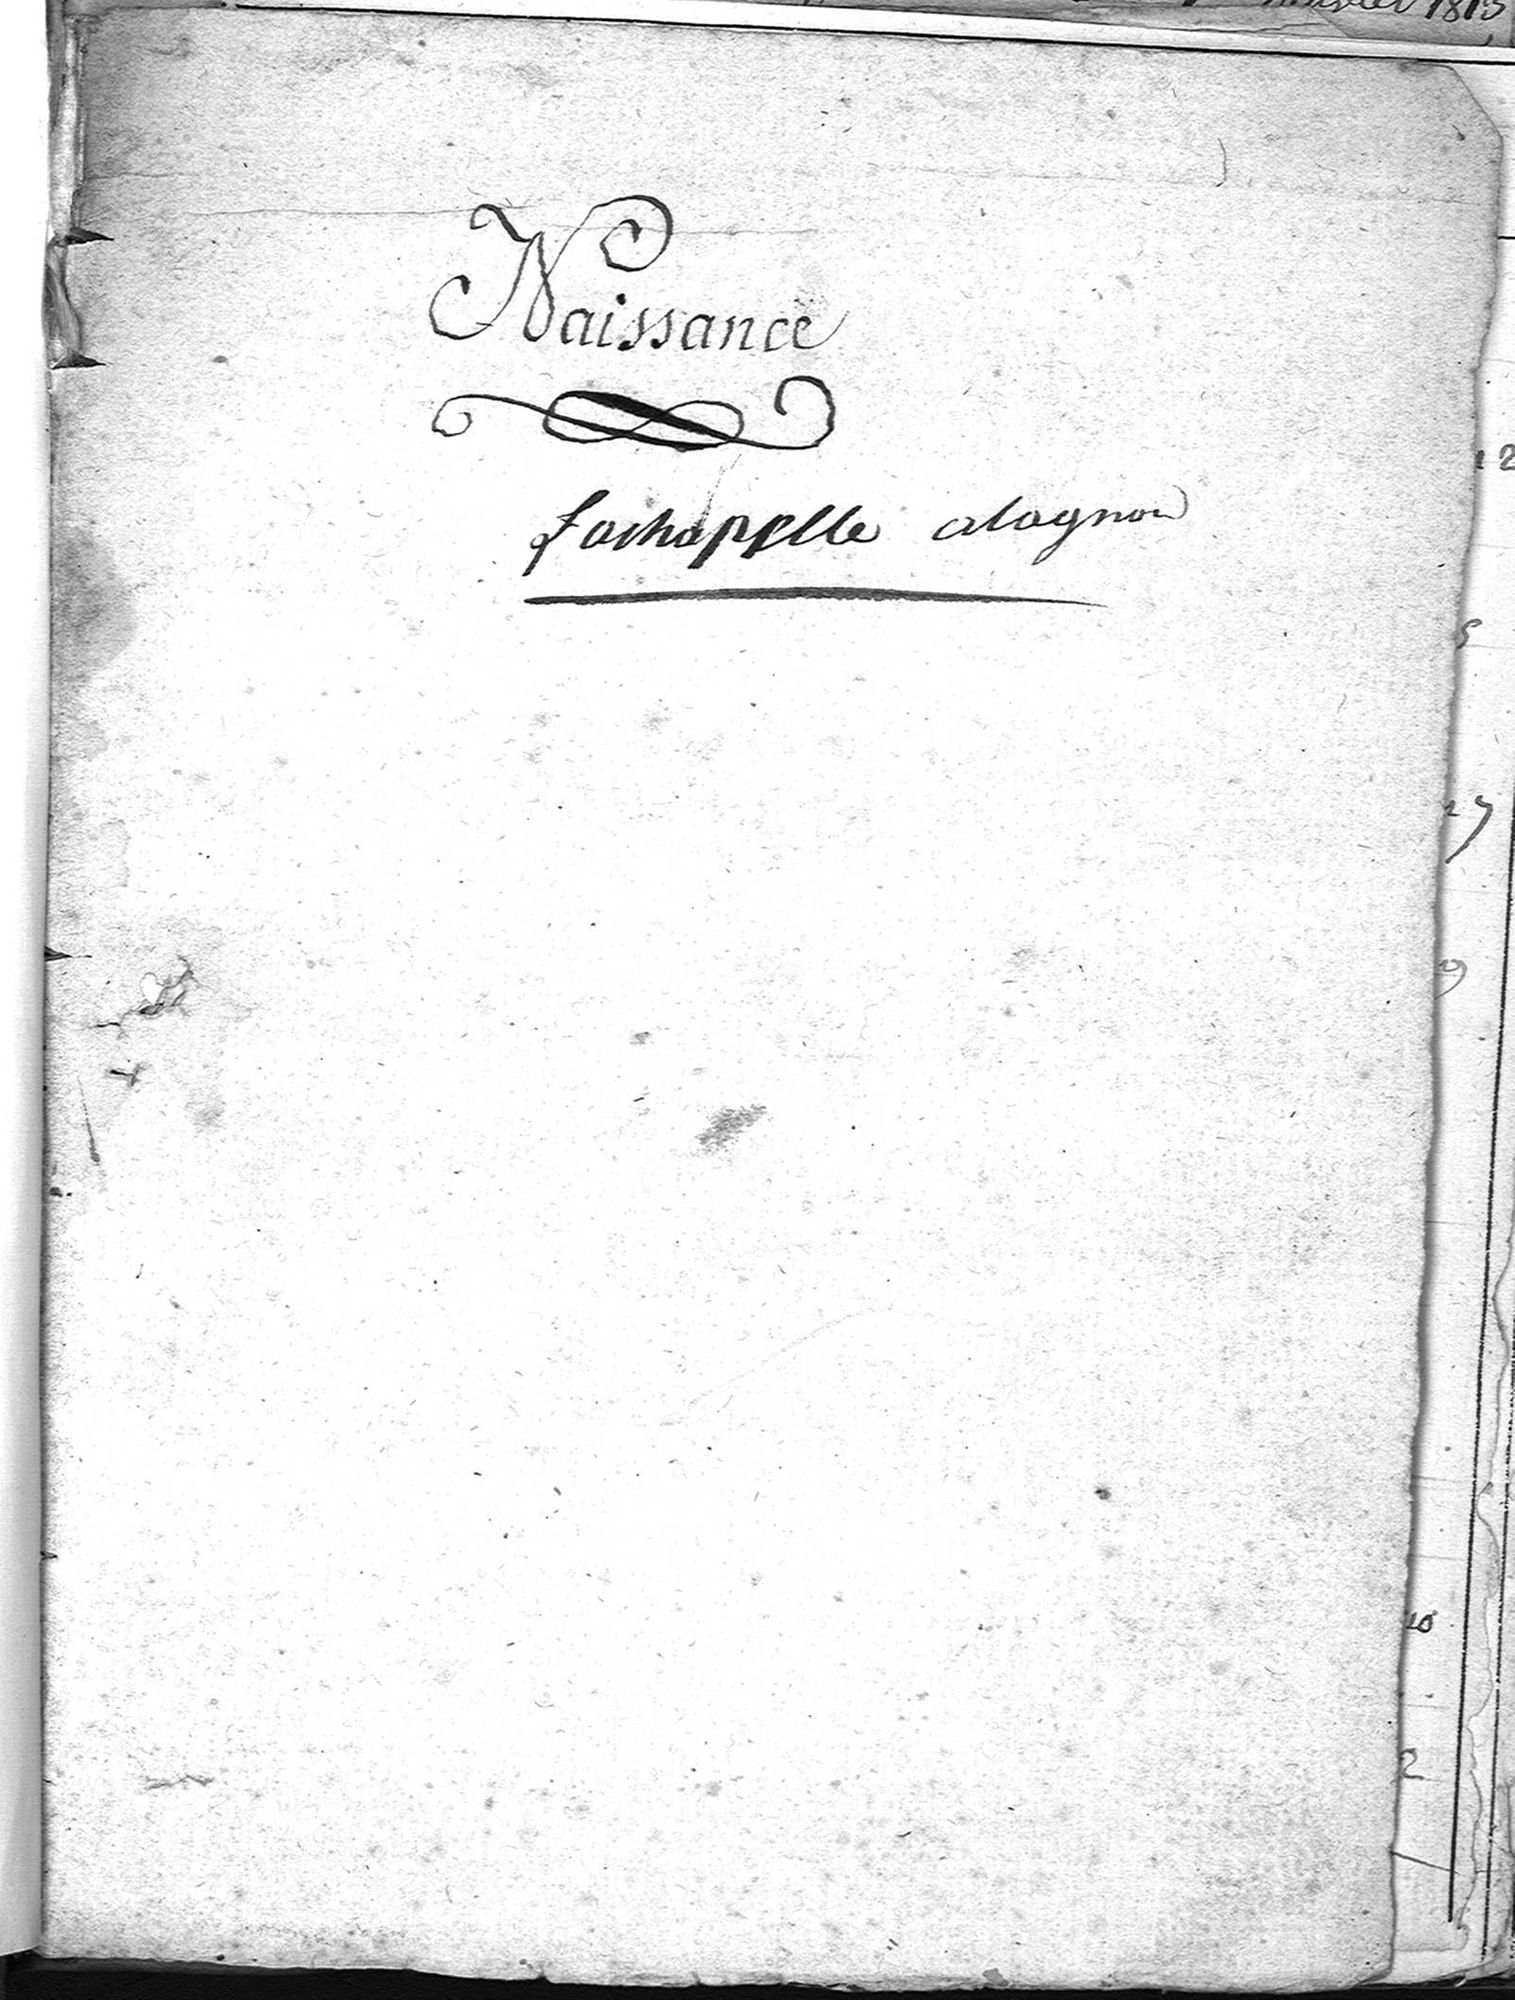 1813
Naissance
Lachapelle alagnon
12
5
27
9
10
2